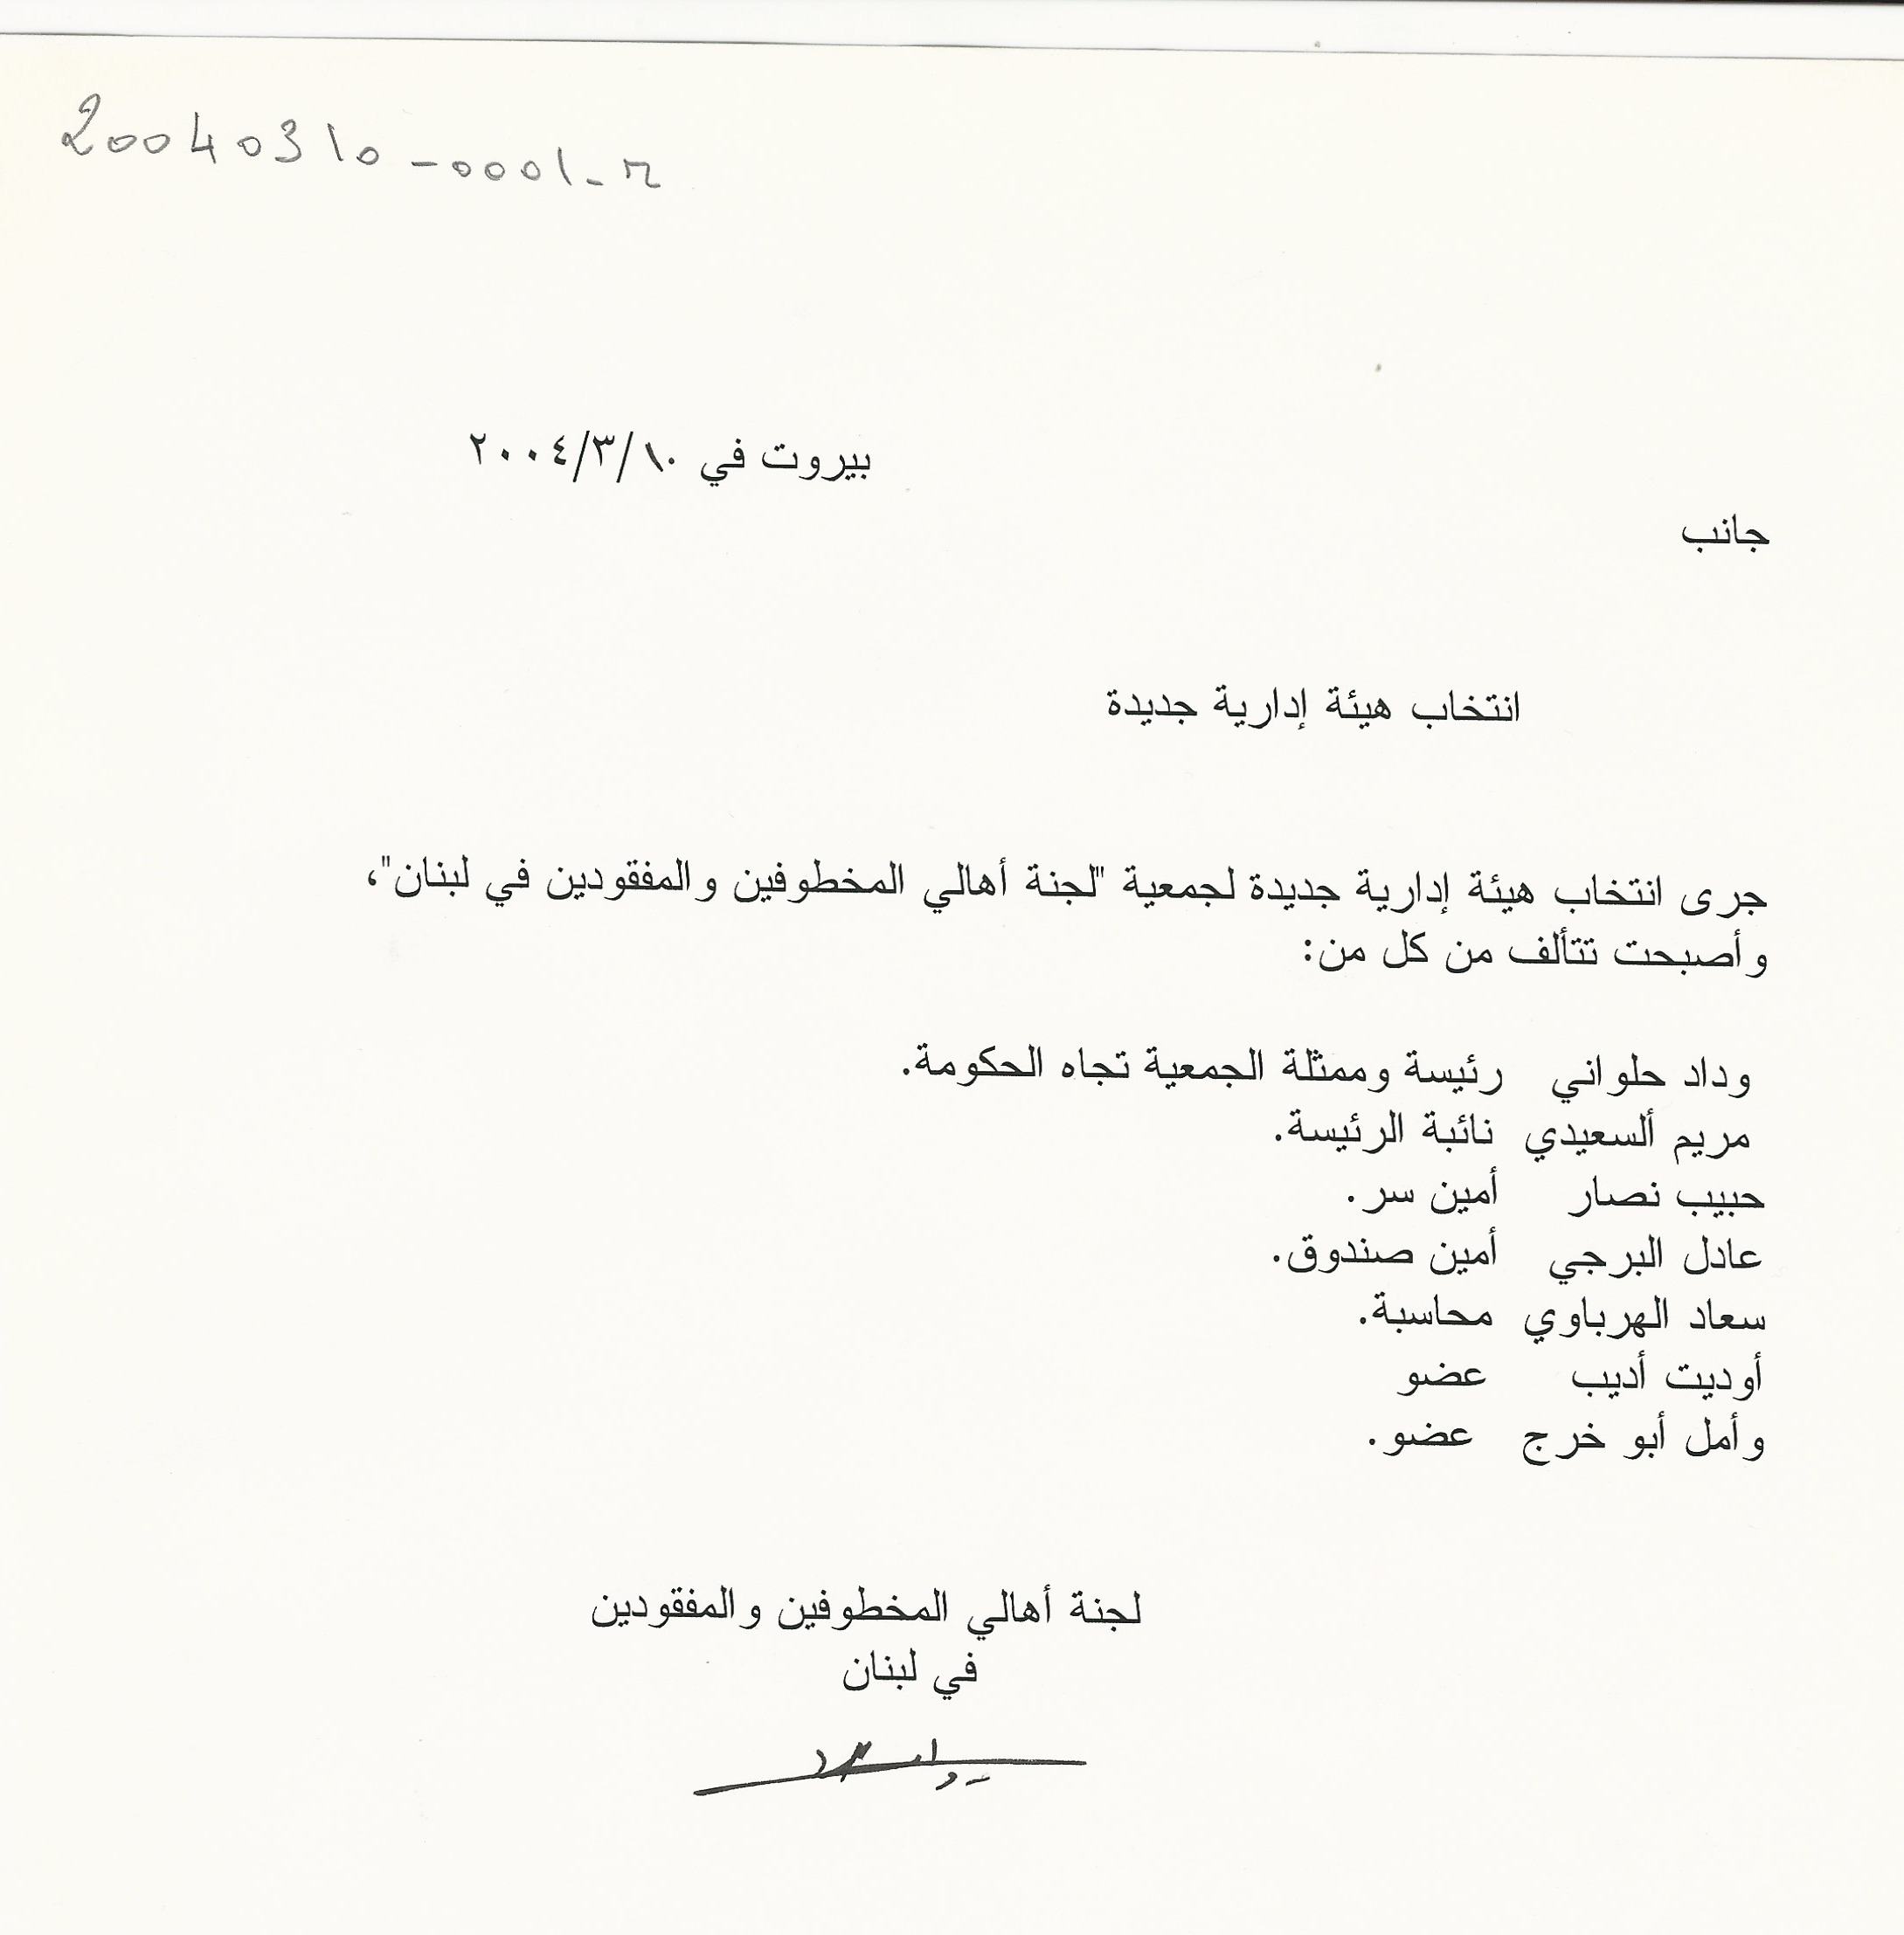 20040310-0001-r
بيروت في ٢٠٠٤/٣/١٠
جانب
انتخاب هيئة إدارية جديدة
جرى انتخاب هيئة إدارية جديدة لجمعية "لجنة أهالي المخطوفين والمفقودين في لبنان"،
وأصبحت تتألف من كل من:
وداد حلواني رئيسة وممثلة الجمعية تجاه الحكومة.
مريم ألسعيدي نائبة الرئيسة.
حبيب نصار أمين سر.
عادل البرجي أمين صندوق.
سعاد الهرباوي محاسبة.
أوديت أديب عضو
وأمل أبو خرج عضو.
لجنة أهالي المخطوفين والمفقودين
في لبنان